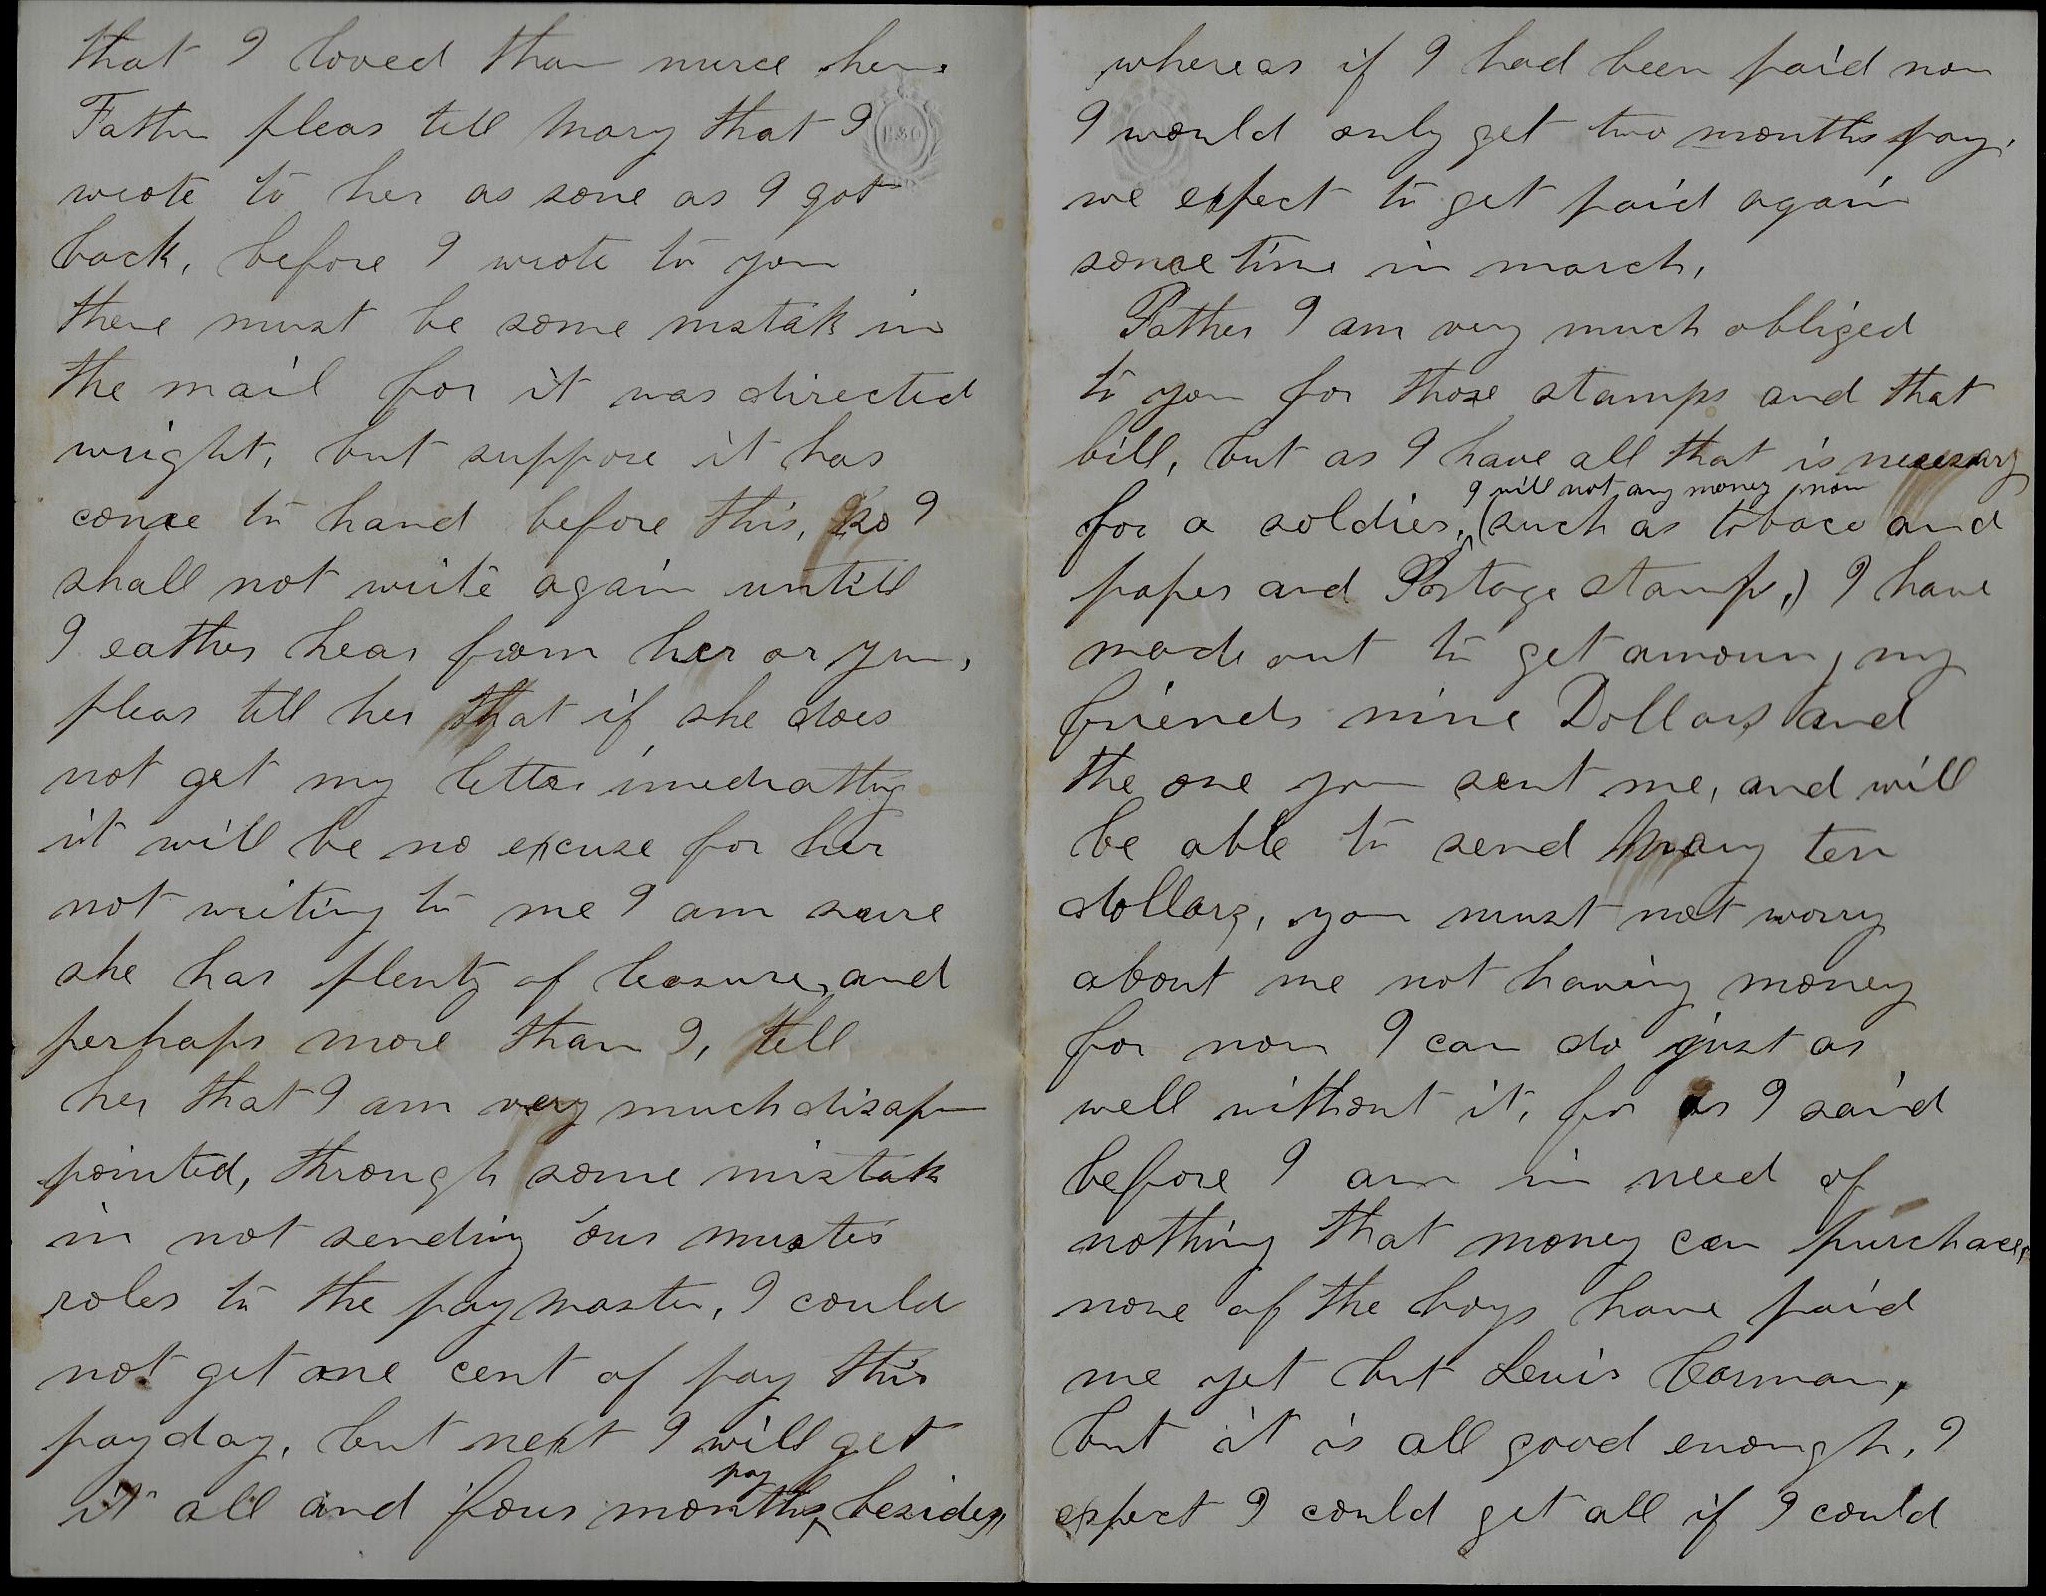 that I loved than nurce her.
Father pleas till Mary that I
wrote to her as sone as I got
back, before I wrote to you
there must be some mstak in
the mail for it was directed
wright, but suppose it has
come to hand before this, so I
shall not write again untill
I eather hear from her or you,
pleas till her that if she does
not get my letter imediattly
it will be no excuse for her
not writing to me I am sure
she has plenty of leasure, and
perhaps more than I, tell
her that I am very much disap
pointed, through some mistak
in not sending our muster
roles to the paymaster, I could
not get one cent of pay this
payday, but next I will get
pay
it all and four months besides,
whereas if I had been paid now
I would only get two months pay,
we expect to get paid again
some time in march,
Father I am very much obliged
to you for those stamps and that
bill, but as I have all that is necesary
I will not any money now
for a soldier, (such as tobaco and
paper and Postage stamps,) I have
made out to get amoung my
friends nine Dollars and
the one you sent me, and will
be able to send Mary ten
dollars, you must not worry
about me not having money
for now I can do just as
well without it, for as I said
before I am in need of
nothing that money can purchace,
none of the boys have paid
me yet but Lewis Carman,
but it is all good enough, I
expect I could get all if I could